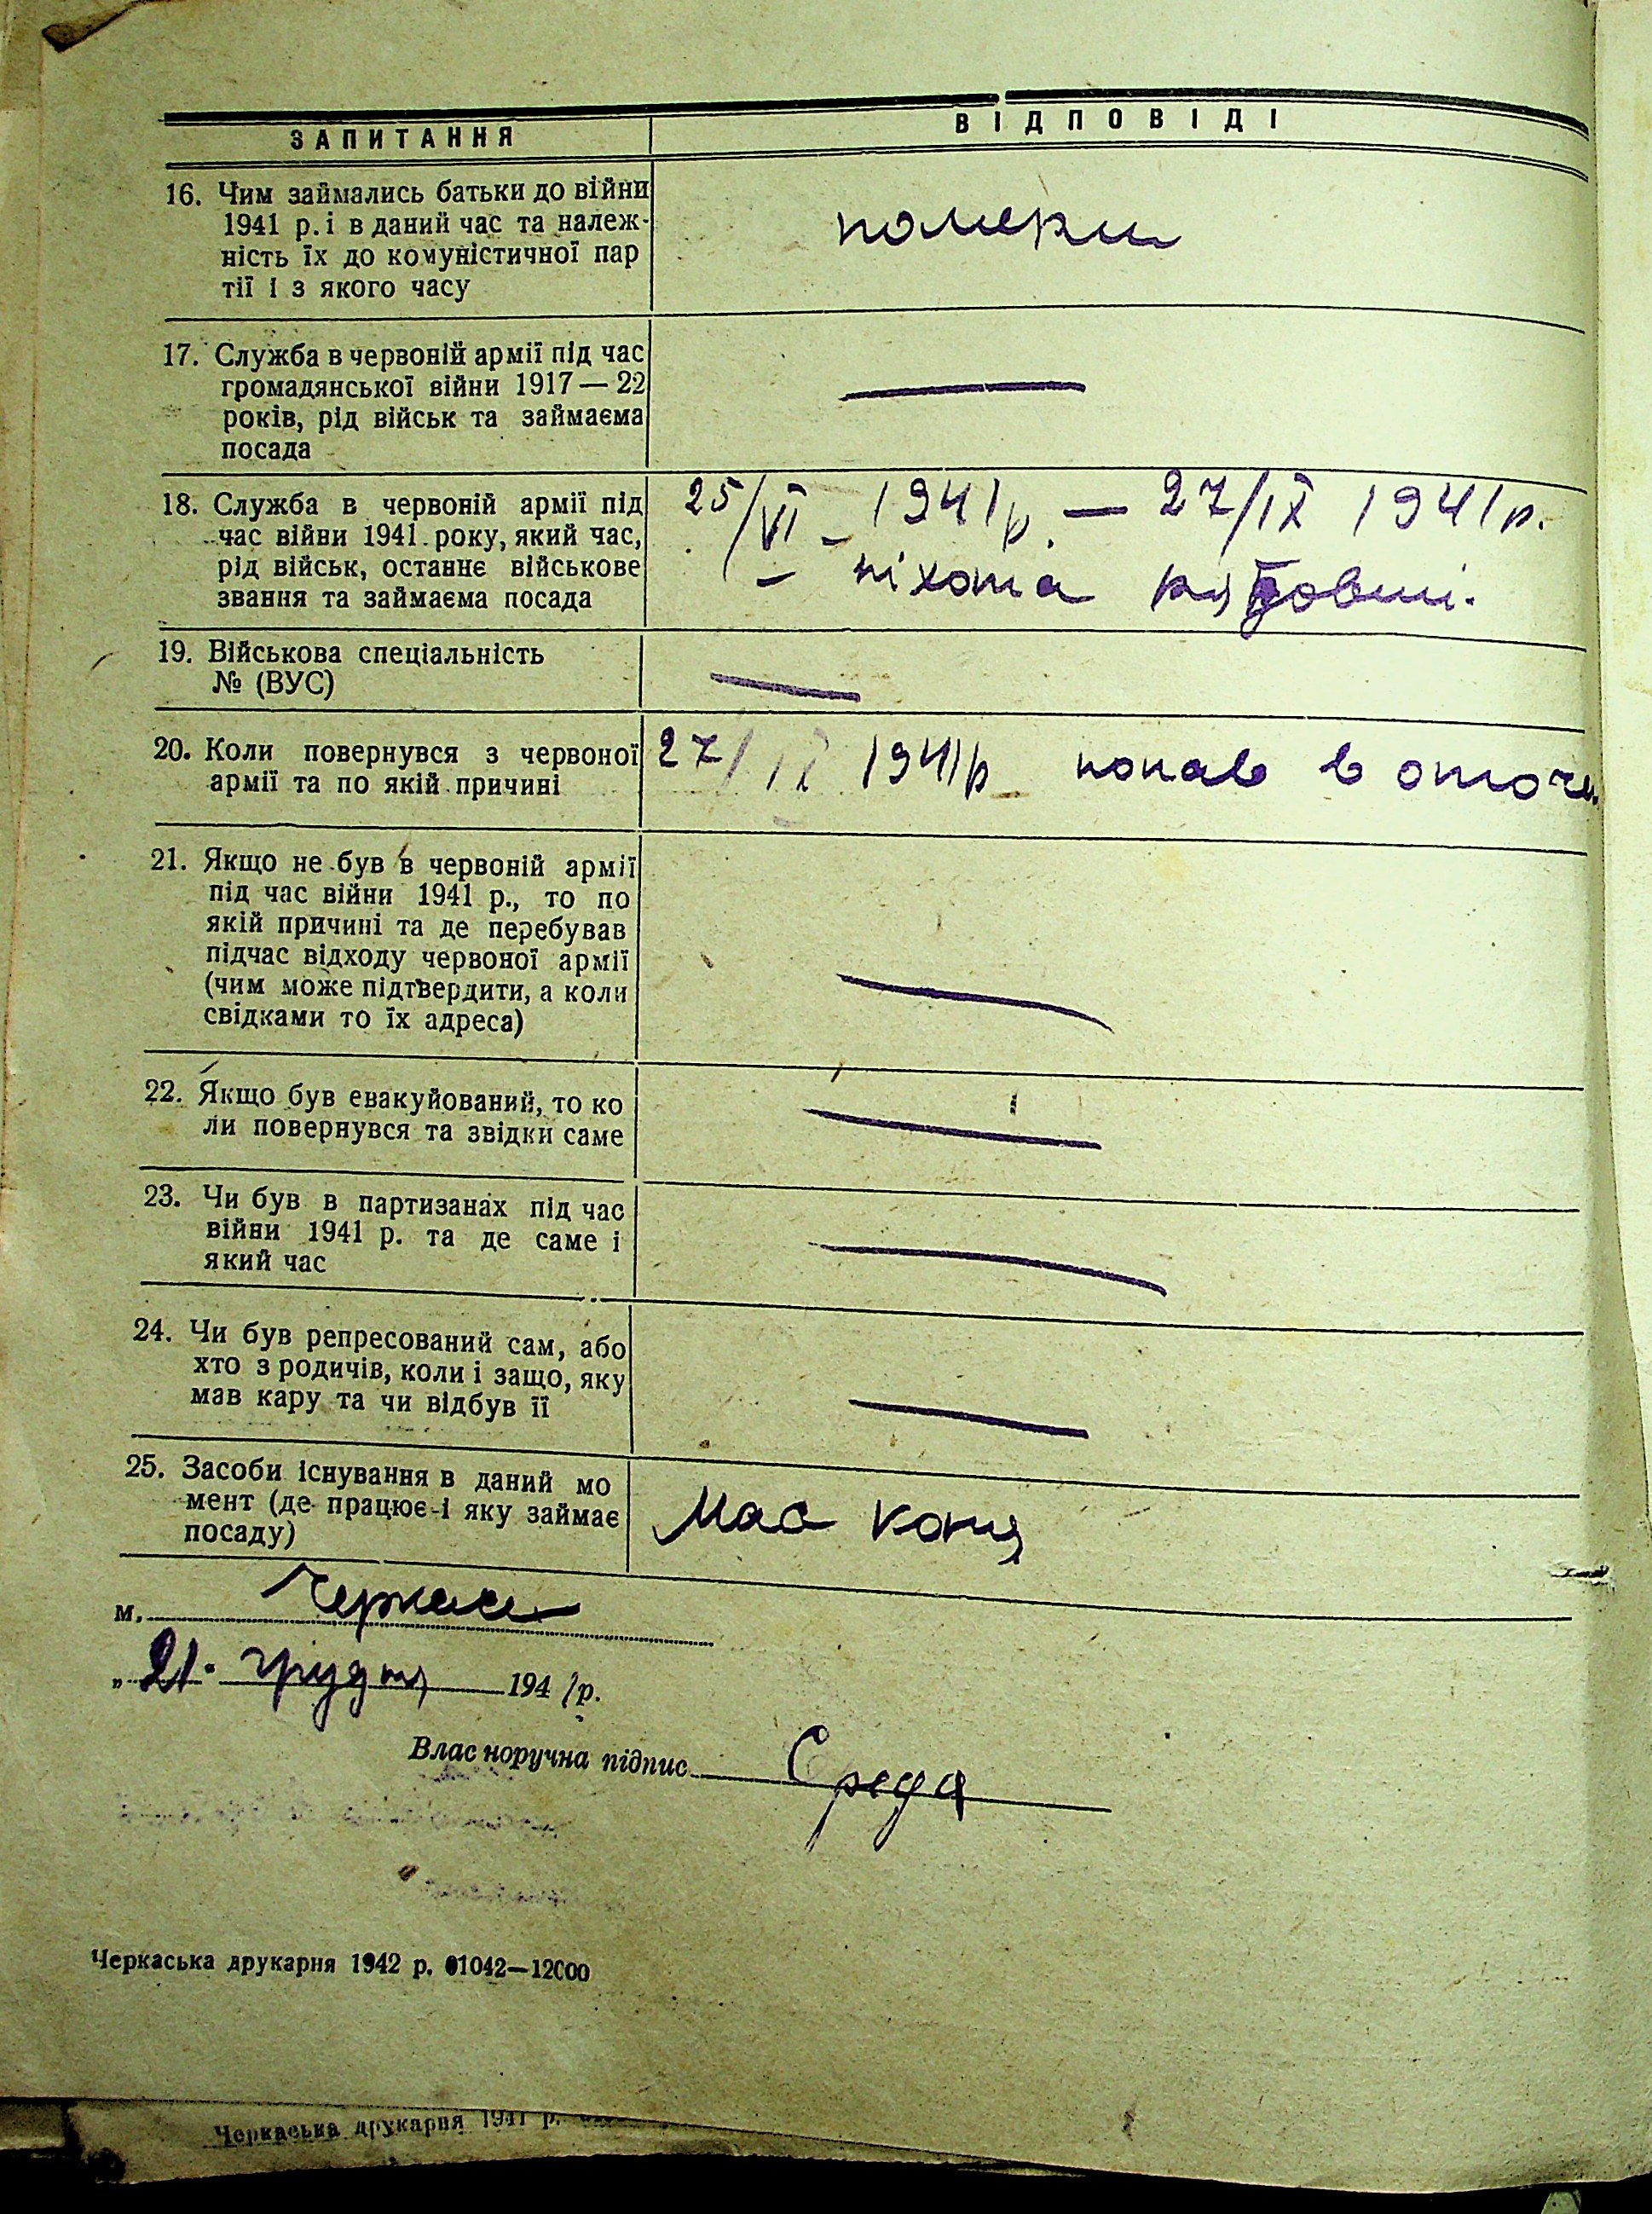 ЗАПИТАННЯ
ВІДПОВІДІ
16. Чим займались батьки до війни
1941 р. і в даний час та належ-
ність їх до комуністичної пар
тії і з якого часу
померли
17. Служба в червоній армії під час
громадянської війни 1917 — 22
років, рід військ та займаєма
посада
—
18. Служба в червоній армії під
час війни 1941 року, який час,
рід військ, останнє військове
звання та займаєма посада
25/VI - 1941 р. — 27/IX 1941 р.
– піхота рядовий.
19. Військова спеціальність
№ (ВУС)
—
20. Коли повернувся з червоної
армії та по якій причині
27/IX 1941 р попав в оточ.
21. Якщо не був в червоній армії
під час війни 1941 р., то по
якій причині та де перебував
підчас відходу червоної армії
(чим може підтвердити, а коли
свідками то їх адреса)
—
22. Якщо був евакуйований, то ко
ли повернувся та звідки саме
—
23. Чи був в партизанах під час
війни 1941 р. та де саме і
який час
—
24. Чи був репресований сам, або
хто з родичів, коли і защо, яку
мав кару та чи відбув її
—
25. Засоби існування в даний мо
мент (де працює і яку займає
посаду)
Має коня
м. Черкаси
„21. грудня 1941 р.
Власноручна підпис Среда
Черкаська друкарня 1942 р. 01042—12000
Черкаська друкарня 1941 р.